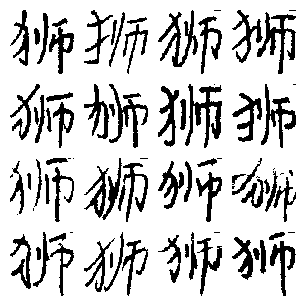 狮狮狮狮
狮狮狮狮
狮狮狮狮
狮狮狮狮